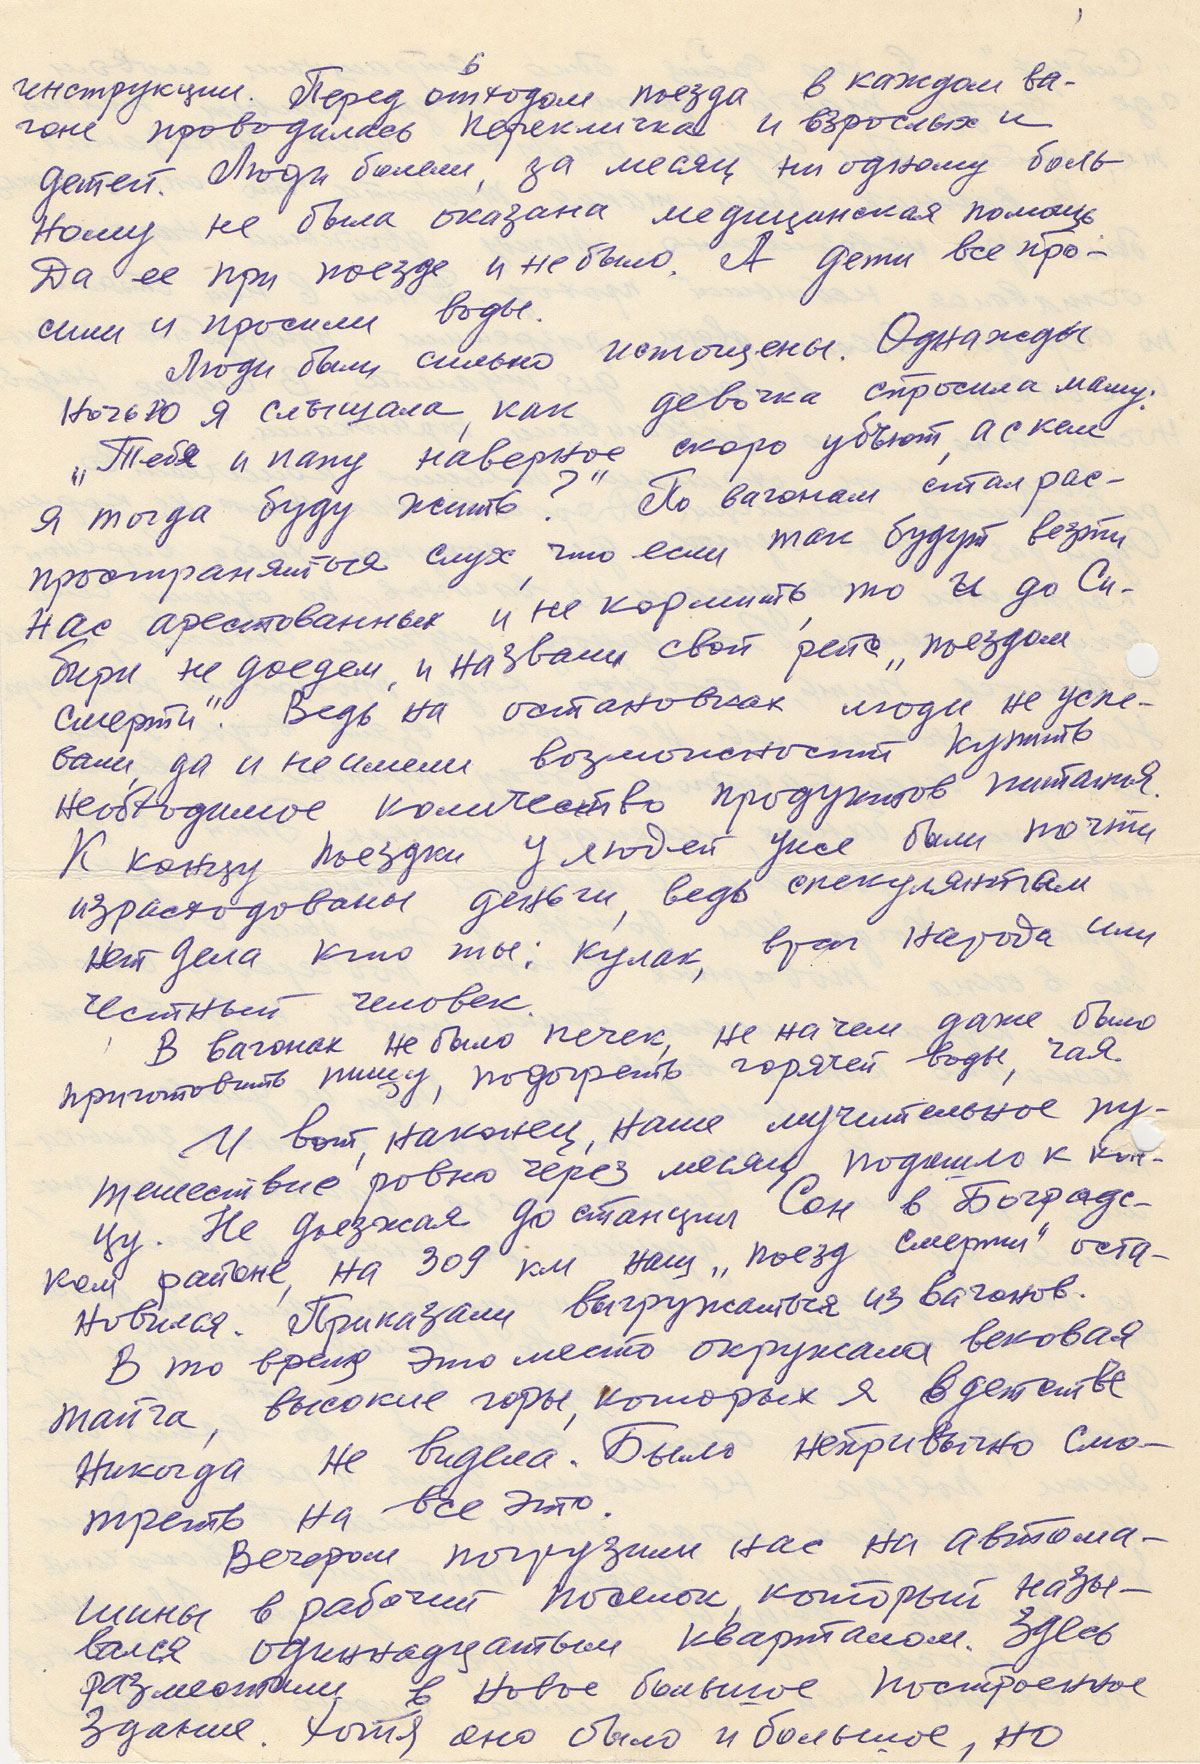 6
инструкции. Перед отходом поезда в каждом ва-
гоне проводилась перекличка и взрослых и
детей. Люди болели, за месяц ни одному боль-
ному не была оказана медицинская помощь
Да ее при поезде и не было. А дети все про-
сили и просили воды.
Люди были сильно истощены. Однажды
ночью я слышала, как девочка спросила маму:
„Тебя и папу наверное скоро убьют, а с кем
я тогда буду жить?" По вагонам стал рас-
пространяться слух, что если так будут везти
нас арестованных и не кормить, то и до Си-
бири не доедем, и назвали свой рейс „поездом
смерти". Ведь на остановках люди не успе-
вали, да и не имели возможности купить
необходимое количество продуктов питания.
К концу поездки у людей уже были почти
израсходованы деньги, ведь спекулянтам
нет дела кто ты: кулак, враг народа или
честный человек.
В вагонах не было печек, не на чем даже было
приготовить пищу, подогреть горячей воды, чая.
И вот, наконец, наше мучительное пу-
тешествие ровно через месяц подошло к кон-
цу. Не доезжая до станции Сон в Боградс-
ком районе, на 309 км наш „поезд смерти" оста-
новился. Приказали выгружаться из вагонов.
В то время это место окружала вековая
тайга, высокие горы, которых я в детстве
никогда не видела. Было непривычно смо-
треть на все это.
Вечером погрузили нас на автома-
шины в рабочий поселок, который назы-
вался одиннадцатым кварталом. Здесь
разместили в новое большое построенное
здание. Хотя оно было и большое, но